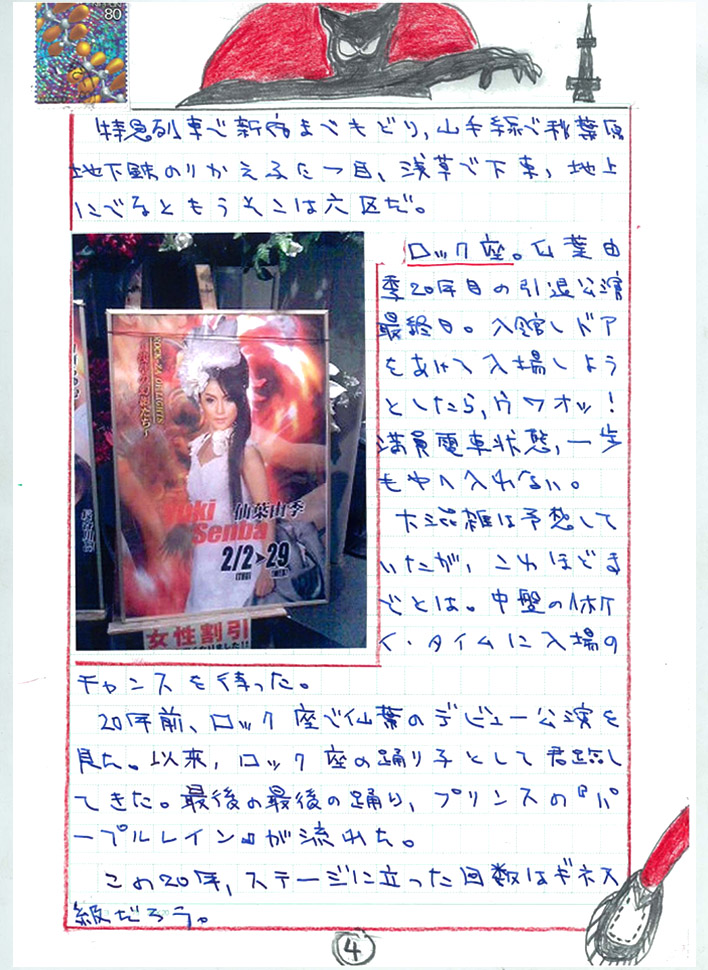 80
特急列車で新宿までもどり、山手線で秋葉原
地下鉄のりかえふたつ目、浅草で下車、地上
にでるともうそこは六区だ。
ロック座。仙葉由
季20年目の引退公演
最終日。入館しドア
をあけて入場しよう
としたら、ウワオッ！
満員電車状態、一歩
もやへ入れない。
大混雑は予想して
いたが、これほどま
でとは。中盤の休ケ
イ・タイムに入場の
チャンスを待った。
20年前、ロック座で仙葉のデビュー公演を
見た。以来、ロック座の踊り子として君臨し
てきた。最後の最後の踊り、プリンスの『パ
ープルレイン』が流れた。
この20年、ステージに立った回数はギネス
級だろう。
Yuki
Senba
仙葉由季
2/2▶29
女性割引
4